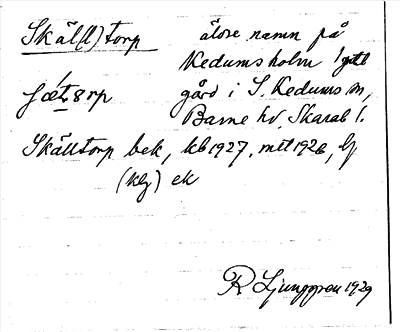 Skäl(l)torp äldre namn på
Kedumsholm
gård i S. Kedums sn,
Barne hd, Skarab l.
Skälltorp bek, kb 1927, mtl 1926, lj
(klg) ek
R Ljunggren 1929